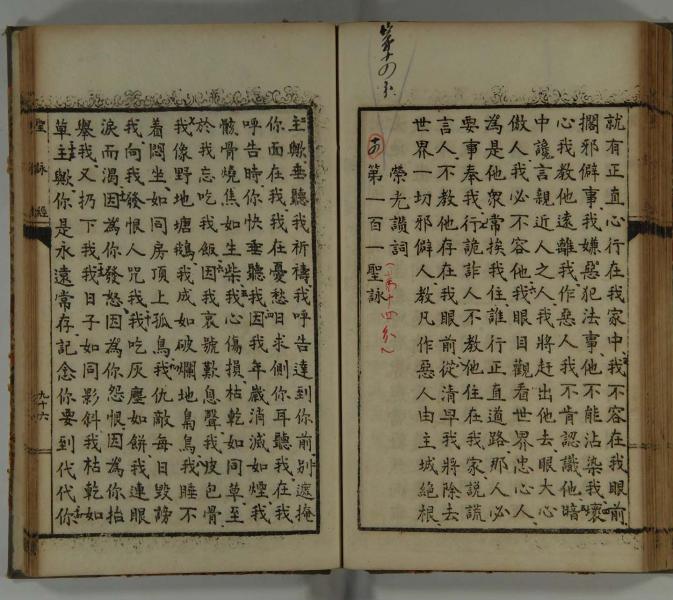 就有正直心行在我家中我不容在我眼前
擱邪僻事我嫌惡犯法事他不能沾染我壞
心我教他遠離我作惡人我不肯認識他暗
中讒言親近人之人我將赶出他去眼大心
傲人我必不容他我眼目觀看世界忠心人
為是他衆常挨我住誰行正直道路那人必
要事奉我行詭詐人不教他住在我家説謊
言人不教他存在我眼前從清早我將除去
世界一切邪僻人教凡作惡人由主城絶根
榮光讚詞
第一百一聖詠
主歟垂聽我祈禱我呼告達到你前別遮掩
你面在我我在憂愁日求側你耳聽我在我
呼告時你快垂聽我因我年歲消滅如煙我
骸骨燒焦如生柴我心傷損枯乾如同草至
於我忘吃我飯因我哀號歎息聲我皮包骨
我像野地塘鵝我成如破爛地梟鳥我睡不
着悶坐如同房頂上孤鳥我仇敵每日毀謗
我向我發恨人咒我我吃灰塵如餅我連眼
淚而渴因為你發怒因為你怨恨因為你抬
舉我又扔下我我日子如同影斜我枯乾如
草主歟你是永遠常存記念你要到代代你
聖詠經
九十六